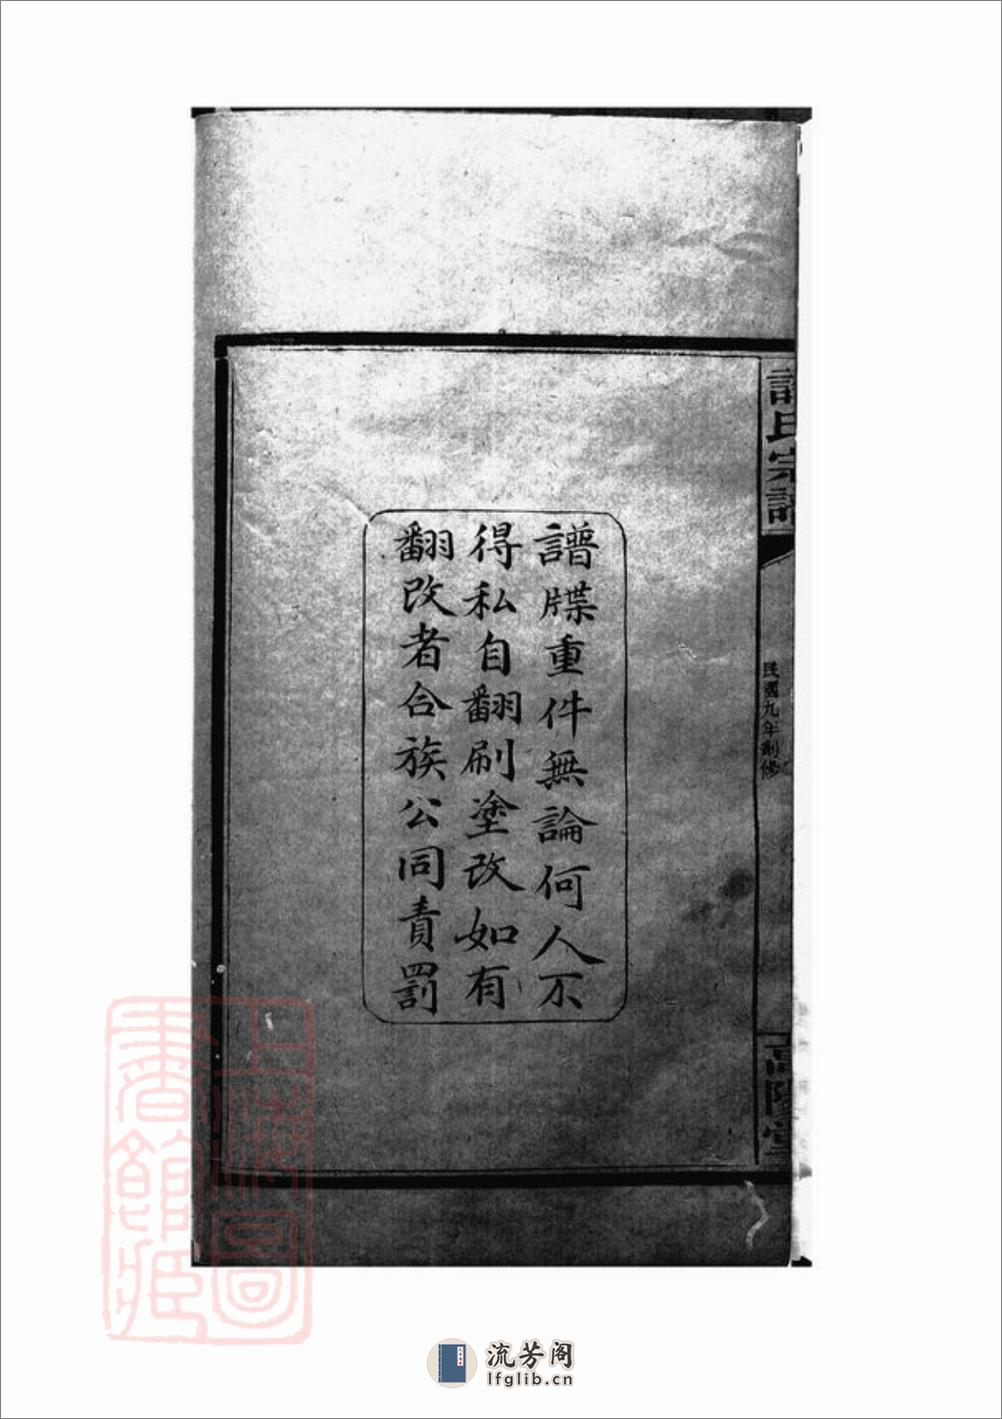 譜牒重件無論何人不
得私自翻刷塗改如有
翻改者合族公同責罰
許氏宗譜
民國九年創修
高陽堂
上海圖
書館藏
流芳阁
lfglib.cn